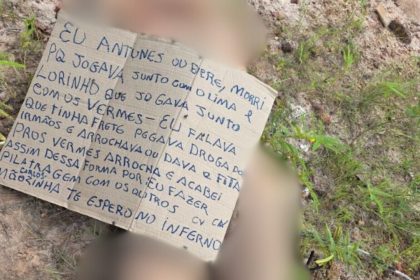 EU ANTUNES OU BEBÊRE, MORRI
PQ JOGAVA JUNTO COM O LIMA E
LORINHO QUE JOGAVA JUNTO
COM OS VERMES - EU FALAVA
QUE TINHA FRETE PEGAVA DROGA DO
IRMÃOS E ARROCHAVA OU DAVA A FITA
PROS VERMES ARROCHA E ACABEI
ASSIM DESSA FORMA POR EU FAZER
PILATRAGEM COM OS OUTROS CV CM
CARLOS
MÃOZINHA TE ESPERO NO INFERNO